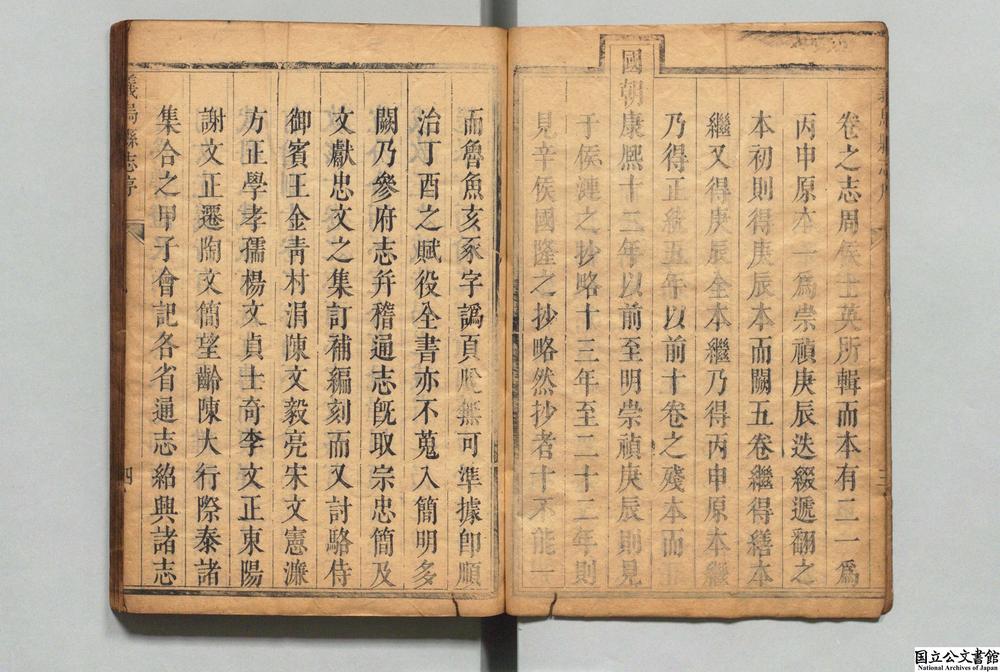 卷之志周侯士英所輯而本有二一爲
丙申原本一爲崇禎庚辰迭綴遞翻之
本初則得庚辰本而闕五卷繼得繕本
繼又得庚辰全本繼乃得丙申原本繼
乃得正統五年以前十卷之殘本而
國朝康熈十二年以前至明崇禎庚辰則見
于侯漣之抄略十三年至二十二年則
見辛侯國隆之抄略然抄者十不能一
而魯魚亥豕字譌頁脫無可準據卽順
治丁酉之賦役全書亦不蒐入簡明多
闕乃參府志幷稽通志旣取宗忠簡及
文獻忠文之集訂補編刻而又討駱侍
御賓王金靑村涓陳文毅亮宋文憲濂
方正學孝孺楊文貞士奇李文正東陽
謝文正遷陶文簡望齡陳大行際泰諸
集合之甲子會記各省通志紹興諸志
義烏縣志序
四
国立公文書館
National Archives of Japan